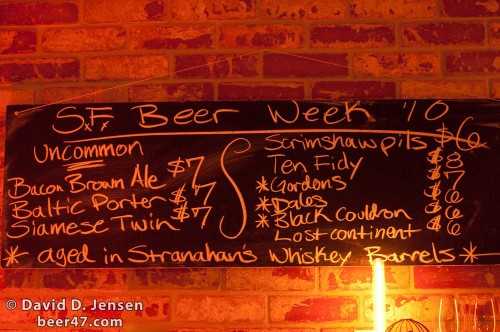 S.F. Beer Week '10
Uncommon
Bacon Brown Ale $7
Baltic Porter $7
Siamese Twin $7
Scrimshaw pils $6
Ten Fidy $8
*Gordons $7
*Dales $6
*Black Couldron $6
Lost continent $6
* aged in Stranahan's Whiskey Barrels *
© David D. Jensen
beer47.com